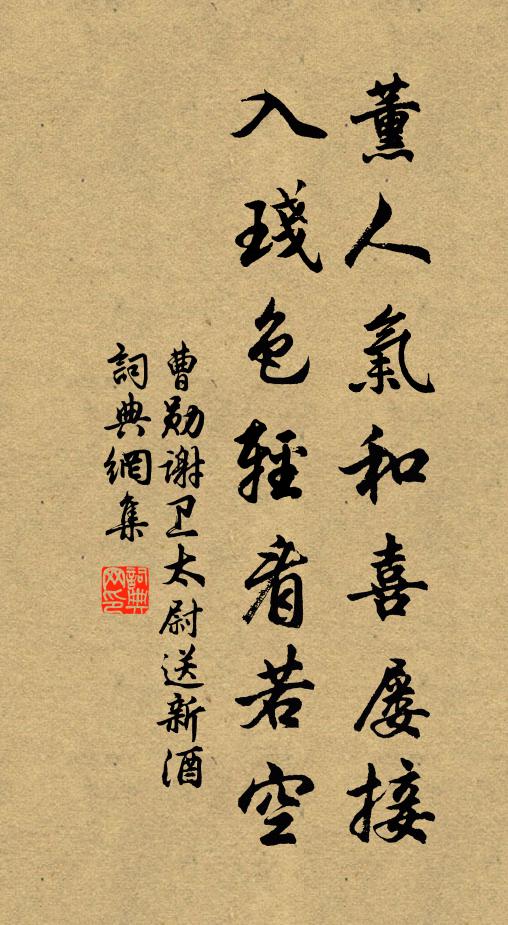 薰人氣和喜屡接
入琖色輕看若空
曹勋謝卫太尉送新酒
詞典網集
詞典
网印